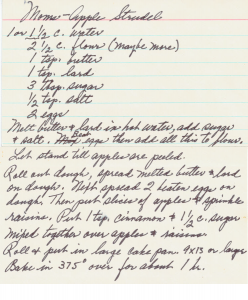 "Mom's Apple Strudel
1 or 1 1/2 c. water
2 1/2 c. flour (maybe more)
1 tsp. butter
1 tsp. lard
3 tbsp. sugar
1/2 tsp. salt
2 eggs
Melt butter & lard in hot water, add sugar
& salt. Beat eggs then add all this to flour.
Let stand till apples are peeled.
Roll out dough, spread melted butter & lard
on dough. Next spread 2 beaten eggs on
dough. Then put slices of apples & sprinkle
raisins. Put 1 tsp. cinnamon & 1 1/2 c. sugar
mixed together over apples & raisins.
Roll & put in large cake pan. 9x13 or larger
Bake in 375° oven for about 1 hr.